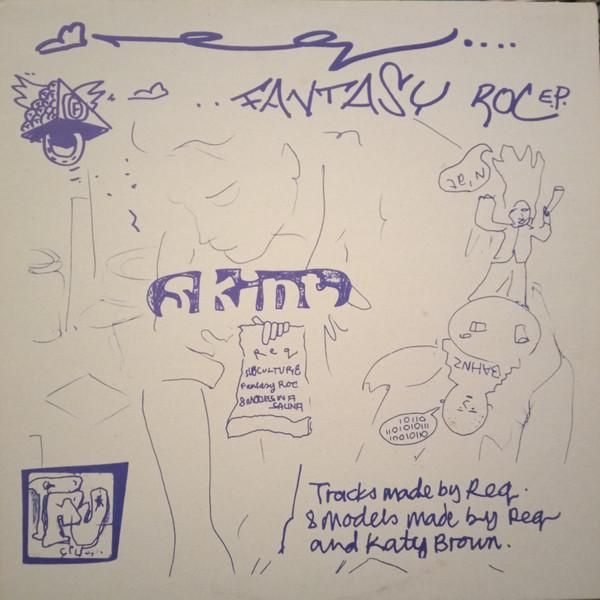 Req....
..FANTASY ROC E.P.
N'at
SKINT
Req
SUBCULTURE
Fantasy Roc
8 MODELS IN A
SAUNA
BAHNZ
10110
11010101
10010101
Tracks made by Req.
8 Models made by Req
and Katy Brown.